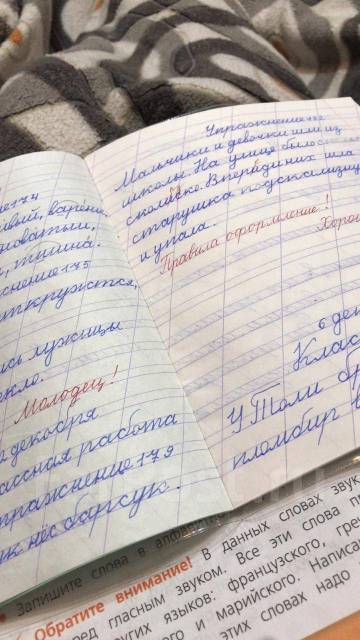 174
варене
новатый,
тишина.
175
откружится,
лужицы
Молодец!
декабря
классная работа
упражнение 179
нёс барсук.
Упражнение
Мальчики и девочки шли из
школы. На улице было
скольско. Впереди них шла
старушка подскользну
и упала.
Правила оформление!
Хоро
6 дек
Клас
У Толи бр
пломбир в
Запишите слова в алфавит
Обратите внимание! В данных словах звук
ред гласным звуком. Все эти слова
других языков: французского, гре
го и марийского. Написа
этих словах надо